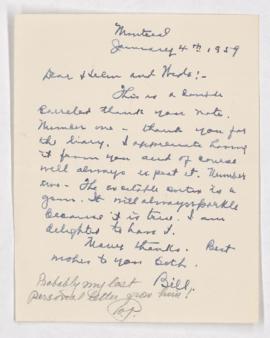 Montreal
January 4th 1959
Dear Helen and Wads:-
This is a double
barreled thank you note.
Number one - thank you for
the diary. I appreciate having
it from you and of course
will always use it. Number
two - The quotable is a
gem. It will always sparkle
because it is true. I am
delighted to have it.
Many thanks. Best
wishes to you both.
Bill
Probably my last
personal letter from him